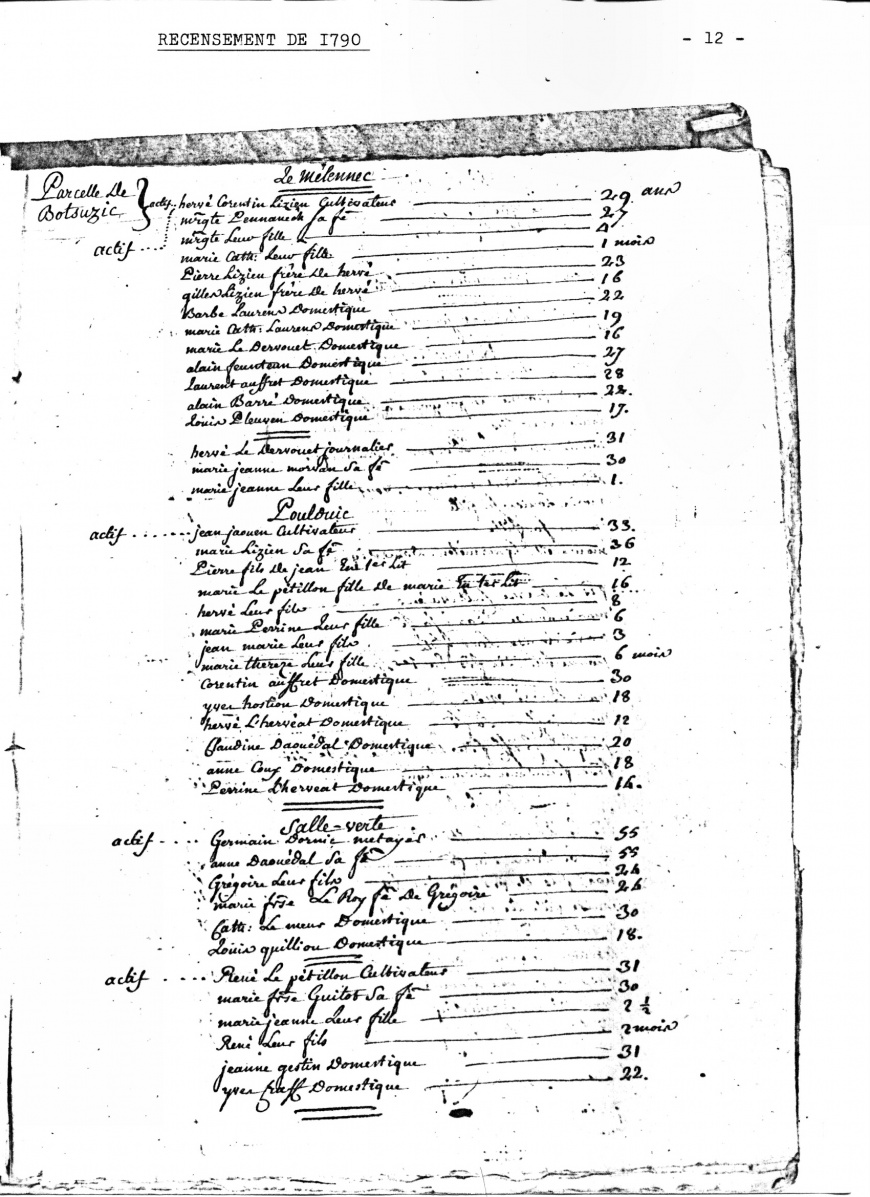 RECENSEMENT DE I790 - 12 -
Le Mélennec
Parcelle De Botsuzic
actif hervé Corentin Lizien Cultivateur 29 ans
mgte Pennanech Sa fe 27
actif .... mgte Leur fille 4
marie Cath: Leur fille 1 mois
Pierre Lizien frère De hervé 23
gilles Lizien frère De hervé 16
Barbe Laurens Domestique 22
marie Cath: Laurens Domestique 19
marie Le Dervouet Domestique 16
alain feunteun Domestique 27
Laurent auffret Domestique 28
alain Barré Domestique 22.
Louis Pleuven Domestique 17.
hervé Le Dervouet journalier 31
marie jeanne morvan Sa fe 30
marie jeanne Leur fille 1.
Poulduic
actif ....... jean jaouen Cultivateur 33.
marie Lizien Sa fe 36
Pierre fils De jean En 1er Lit 12
marie Le pétillon fille De marie En 1er Lit 16
hervé Leur fils 8
marie Perrine Leur fille 6
jean marie Leur fils 3
marie thereze Leur fille 6 mois
Corentin auffret Domestique 30
yves hostiou Domestique 18
hervé L'hervéat Domestique 12
Claudine Daouédal Domestique 20
anne Domestique 18
Perrine L'herveat Domestique 14.
Salle-verte
actif .... Germain Dornic metayer 55
anne Daouédal Sa fe 55
Grégoire Leur fils 24
marie frse Le Roy fe De Grégoire 24
Cath: Le meur Domestique 30
Louis quilliou Domestique 18.
actif .... René Le pétillon Cultivateur 31
marie frse Guitot Sa fe 30
marie jeanne Leur fille 2 ½
René Leur fils 2 mois
jeanne gestin Domestique 31
yves Domestique 22.